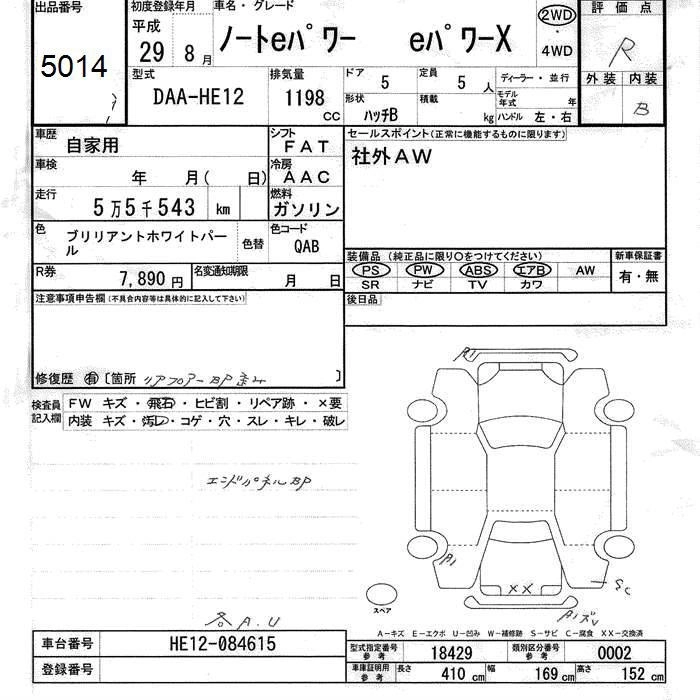 出品番号
5014
初度登録年月
平成
29 8月
車名・グレード
ノートeパワー eパワーX
2WD
・
4WD
評価点
R
外装 内装
B
型式
DAA-HE12
排気量
1198
CC
ドア
5
定員
5人
ディーラー・並行
形状
ハッチB
積載
kg
モデル年式 年
ハンドル 左・右
車歴
自家用
シフト
FAT
セールスポイント(正常に機能するものに限ります)
社外AW
車検
年 月( 日)
冷房
AAC
走行
5万5千543 km
燃料
ガソリン
色
ブリリアントホワイトパール
色替
色コード
QAB
装備品(純正品に限り○をつけてください)
新車保証書
PS PW ABS エアB AW
有・無
SR ナビ TV カワ
R券
7,890円
名変通知期限
月 日
後日品
注意事項申告欄(不具合内容等は具体的に記入して下さい)
修復歴 有 〔箇所 リアフロアーBP歪み 〕
検査員記入欄
FW キズ・飛石・ヒビ割・リペア跡・×要
内装 キズ・汚れ・コゲ・穴・スレ・キレ・破レ
エンドパネルBP
A1
A1
××
SC
スペア
各A.U
A-キズ E-エクボ U-凹み W-補修跡 S-サビ C-腐食 XX-交換済
車台番号
HE12-084615
型式指定番号 参考
18429
類別区分番号 参考
0002
登録番号
車庫証明用 参考
長さ 410cm
幅 169cm
高さ 152cm